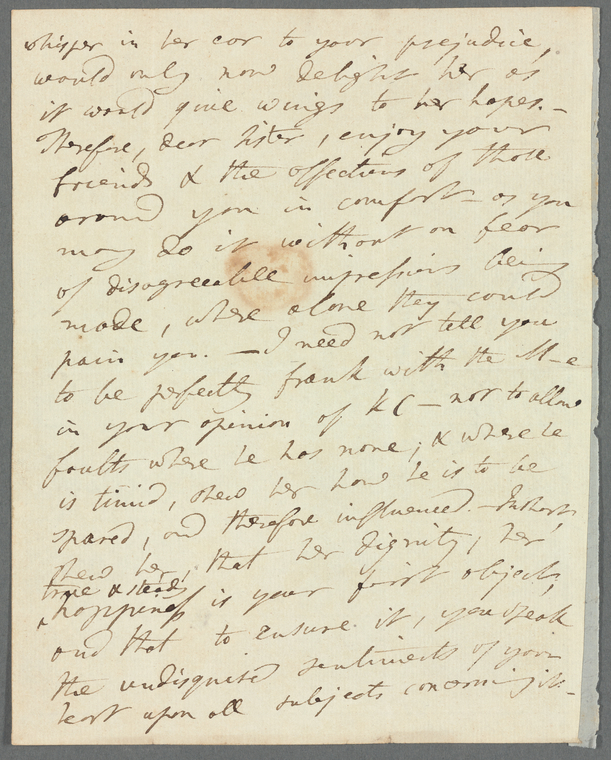 whisper in her ear to your prejudice,
would only now delight her as
it would give wings to her hopes. –
Therefore, dear Sister, enjoy your
friends & the affections of those
around you in comfort – as you
may do it without an fear
of disagreeable impressions being
made, where alone they could
pain you. – I need not tell you
to be perfectly frank with the M–e
in your opinion of KC – nor to allow
faults where he has none; & where he
is timid, shew her how he is to be
spared, and therefore influenced. – In short,
shew her, that her dignity, her
true & steady
happiness is your first object,
and that to ensure it, you speak
the undisguised sentiments of your
heart upon all subjects concerning it –